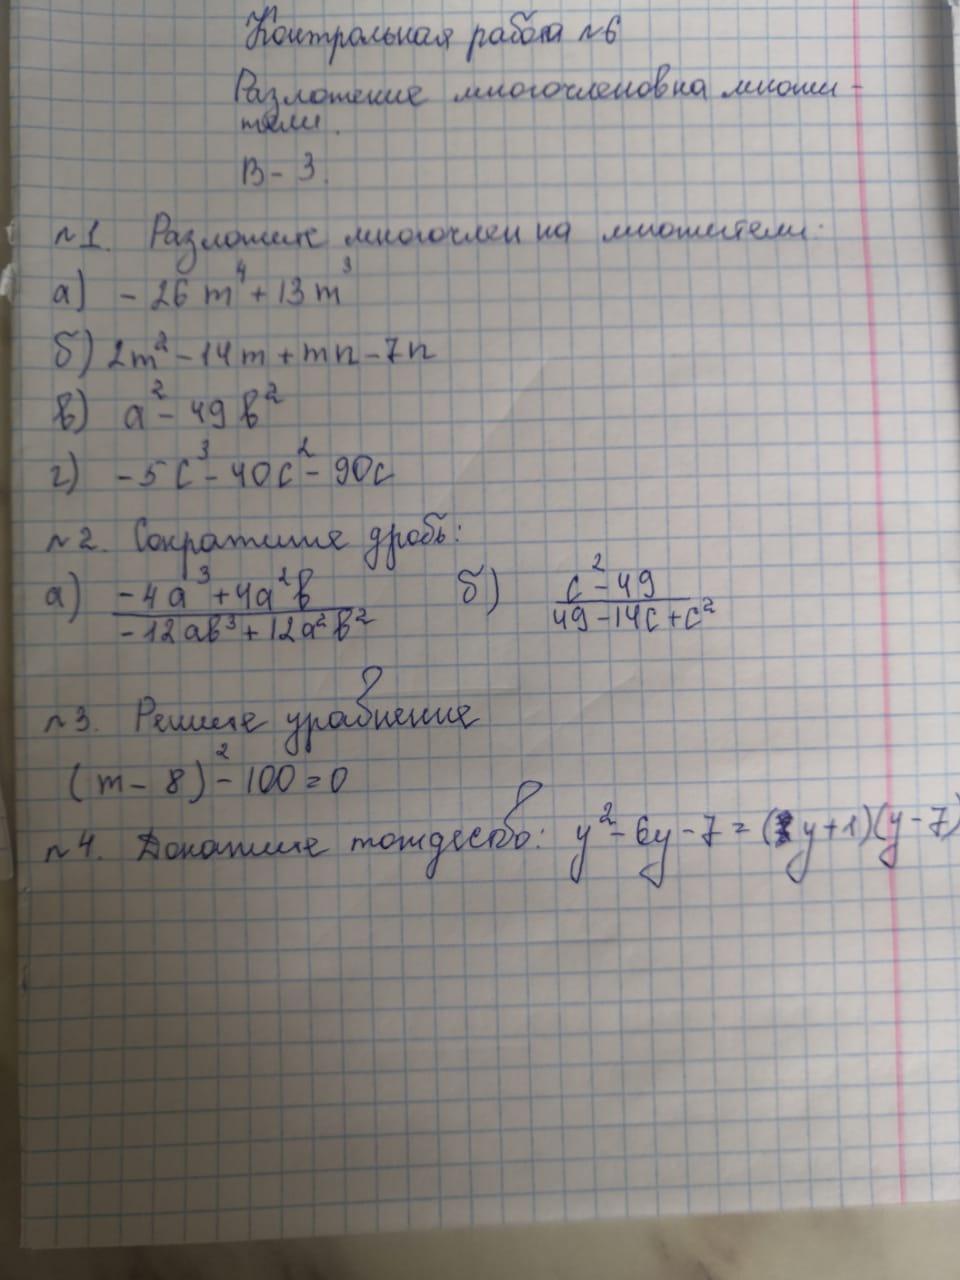 Контрольная работа №6
Разложение многочленов на множи-
тели.
В-3.
№1. Разложите многочлен на множители:
а) -26m⁴+13m³
б) 2m²-14m+mn-7n
в) a²-49b²
г) -5c³-40c²-90c
№2. Сократите дробь:
а) (-4a³+4a²b)/(-12ab³+12a²b²) б) (c²-49)/(49-14c+c²)
№3. Решите уравнение
(m-8)²-100=0
№4. Докажите тождество: y²-6y-7=(y+1)(y-7)